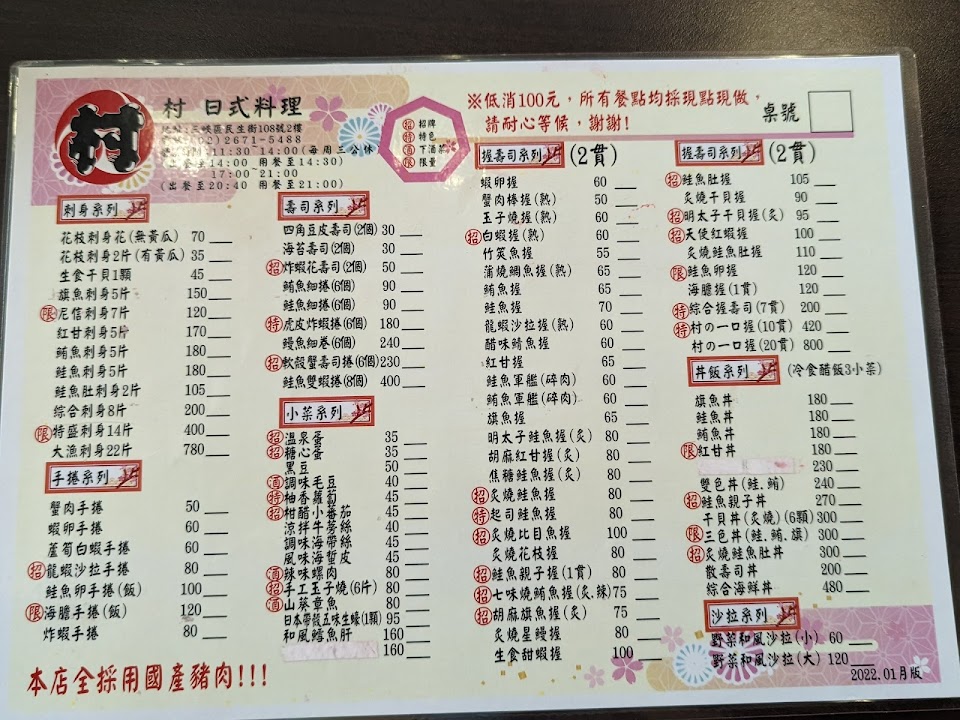 村
村 日式料理
地址:三峽區民生街108號2樓
(02)2671-5488
11:30~14:00(每周三公休)
(出餐至14:00 用餐至14:30)
17:00~21:00
(出餐至20:40 用餐至21:00)
招 招牌
特 特色
酒 下酒菜
限 限量
※低消100元,所有餐點均採現點現做,
請耐心等候,謝謝!
桌號
刺身系列
花枝刺身花(無黃瓜) 70
花枝刺身2片(有黃瓜) 35
生食干貝1顆 45
旗魚刺身5片 150
限 尼信刺身7片 120
紅甘刺身5片 170
鮪魚刺身5片 180
鮭魚刺身5片 180
鮭魚肚刺身2片 105
綜合刺身8片 200
限 特盛刺身14片 400
大漁刺身22片 780
手捲系列
蟹肉手捲 50
蝦卵手捲 60
蘆筍白蝦手捲 60
招 龍蝦沙拉手捲 80
鮭魚卵手捲(飯) 100
限 海膽手捲(飯) 120
炸蝦手捲 80
本店全採用國產豬肉!!!
壽司系列
四角豆皮壽司(2個) 30
海苔壽司(2個) 30
招 炸蝦花壽司(2個) 50
鮪魚細捲(6個) 90
鮭魚細捲(6個) 90
特 虎皮炸蝦捲(6個) 180
鰻魚細卷(6個) 240
招 軟殼蟹壽司捲(6個) 230
鮭魚雙蝦捲(8個) 400
小菜系列
招 溫泉蛋 35
招 糖心蛋 35
黑豆 50
酒 調味毛豆 40
特 柚香蘿蔔 45
招 柑醋小番茄 45
涼拌牛蒡絲 40
調味海帶絲 45
風味海蜇皮 45
酒 辣味螺肉 80
招 手工玉子燒(6片) 80
酒 山葵章魚 80
日本帶殼五味生蠔(1顆) 95
和風鱈魚肝 160
160
握壽司系列 (2貫)
蝦卵握 60
蟹肉棒握(熟) 50
玉子燒握(熟) 60
招 白蝦握(熟) 60
竹筴魚握 55
蒲燒鯛魚握(熟) 65
鮪魚握 65
鮭魚握 70
龍蝦沙拉握(熟) 60
醋味鯖魚握 60
紅甘握 65
鮭魚軍艦(碎肉) 60
鮪魚軍艦(碎肉) 60
旗魚握 65
明太子鮭魚握(炙) 80
胡麻紅甘握(炙) 80
焦糖鮭魚握(炙) 80
招 炙燒鮭魚握 80
特 起司鮭魚握 80
招 炙燒比目魚握 100
炙燒花枝握 80
招 鮭魚親子握(1貫) 80
招 七味燒鮪魚握(炙.辣) 75
招 胡麻旗魚握(炙) 75
炙燒星鰻握 80
生食甜蝦握 100
握壽司系列 (2貫)
招 鮭魚肚握 105
炙燒干貝握 90
招 明太子干貝握(炙) 95
招 天使紅蝦握 100
炙燒鮭魚肚握 110
限 鮭魚卵握 120
海膽握(1貫) 120
特 綜合握壽司(7貫) 200
特 村の一口握(10貫) 420
村の一口握(20貫) 800
丼飯系列 (冷食醋飯3小菜)
旗魚丼 180
鮭魚丼 180
鮪魚丼 180
限 紅甘丼 180
230
雙色丼(鮭.鮪) 240
招 鮭魚親子丼 270
干貝丼(炙燒)(6顆) 300
限 三色丼(鮭.鮪.旗) 300
招 炙燒鮭魚肚丼 300
散壽司丼 200
綜合海鮮丼 480
沙拉系列
野菜和風沙拉(小) 60
野菜和風沙拉(大) 120
2022.01月版